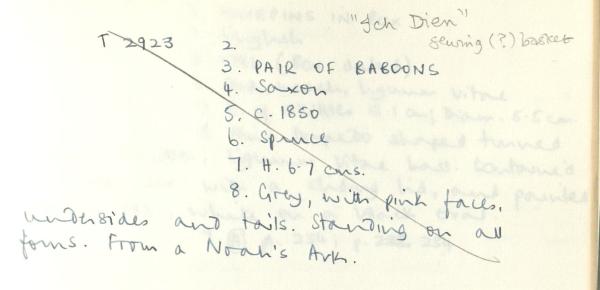 "Ich Dien"
sewing (?) basket
T 2923 2.
3. PAIR OF BABOONS
4. Saxon
5. c. 1850
6. Spruce
7. H. 6.7 cms.
8. Grey, with pink faces,
undersides and tails. Standing on all
fours. From a Noah's Ark.